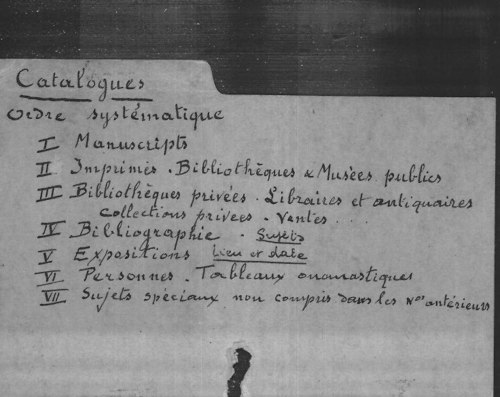 Catalogues
Ordre systématique
I Manuscripts
II Imprimés. Bibliothèques & Musées publics
III Bibliothèques privées. Libraires et antiquaires
Collections privees. Ventes...
IV Bibliographie. Sujets
V Expositions Lieu et date
VI Personnes. Tableaux onomastiques
VII Sujets spéciaux non compris dans les Nos antérieurs